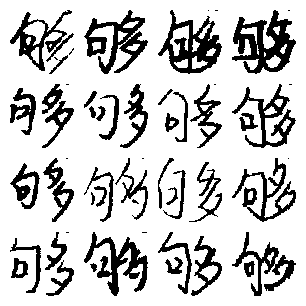 够够够够
够够够够
够够够够
够够够够